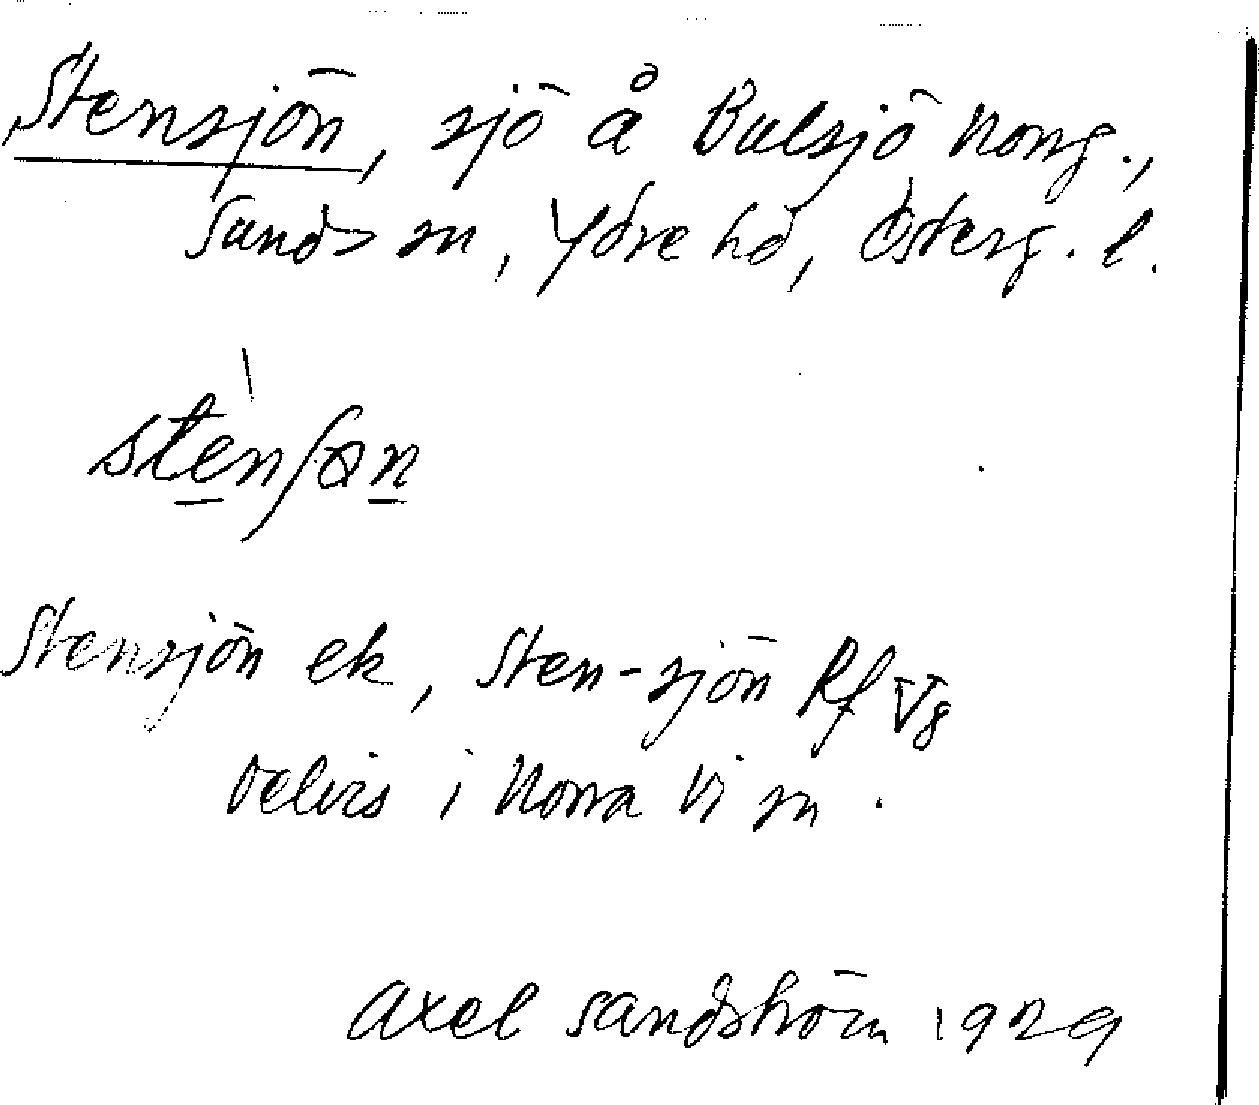 Stensjön, sjö å Bulsjö Norrg.,
Sunds sn, Ydre hd, Österg. l.
stènʃøn
Stensjön ek, Sten-sjön Rf Vg
Delvis i Norra Vi sn.
Axel Sandström 1929